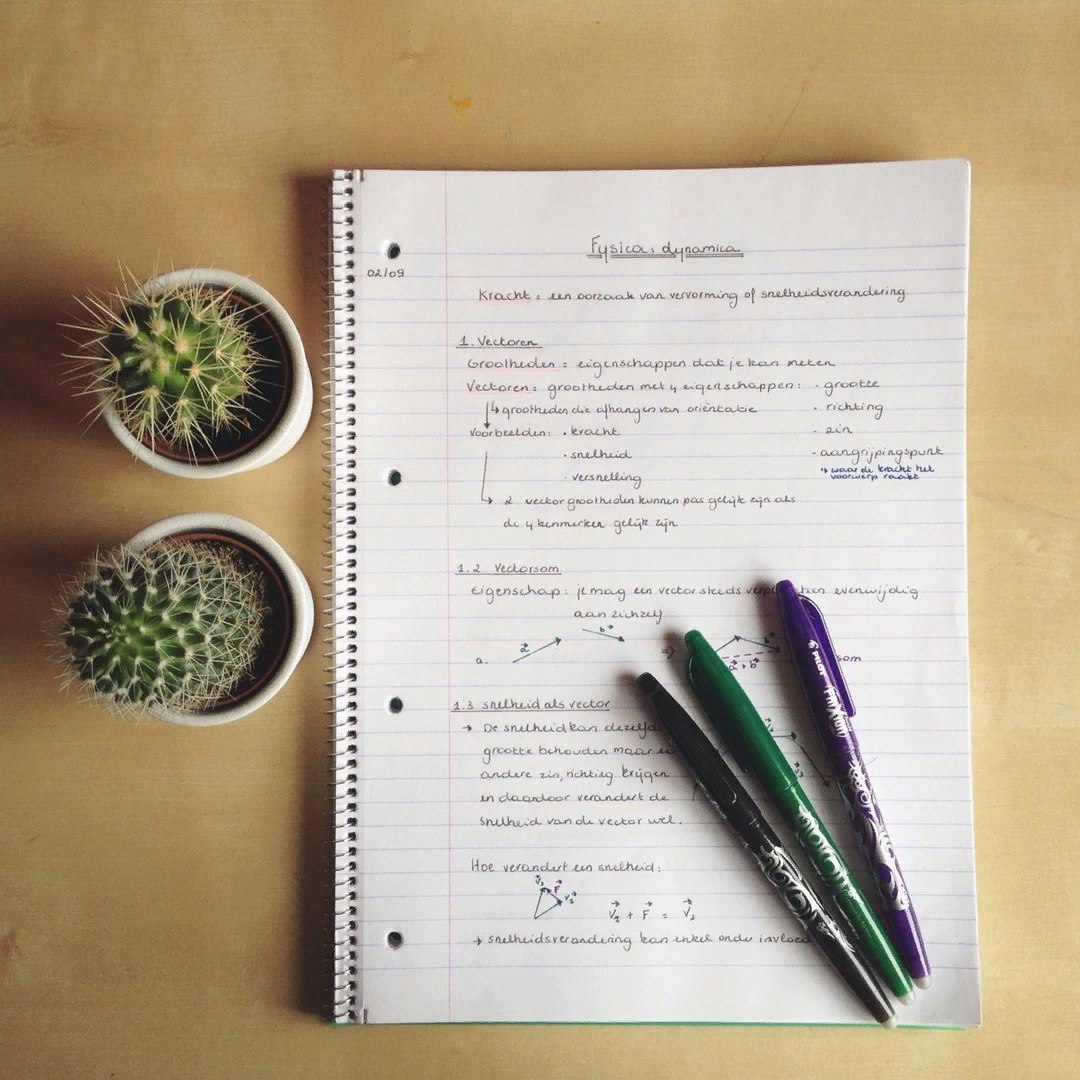 Fysica: dynamica
02/09
Kracht = een oorzaak van vervorming of snelheidsverandering
1. Vectoren
Grootheden = eigenschappen dat je kan meten
Vectoren = grootheden met 4 eigenschappen: · grootte
↳ grootheden die afhangen van oriëntatie · richting
Voorbeelden: · kracht · zin
· snelheid · aangrijpingspunt
↳ waar de kracht het
voorwerp raakt
· versnelling
→ 2 vectorgrootheden kunnen pas gelijk zijn als
de 4 kenmerken gelijk zijn
1.2 Vectorsom
Eigenschap: je mag een vector steeds evenwijdig
aan zichzelf
a. a b ⇒ a + b b som
1.3 snelheid als vector
→ De snelheid kan dezelfd
grootte behouden maar
andere zin, richting krijgen
en daardoor verandert de
snelheid van de vector wel.
Hoe verandert een snelheid:
F
V₂ + F = V₃
→ snelheidsverandering kan enkel onder invloed
PILOT
FriXion